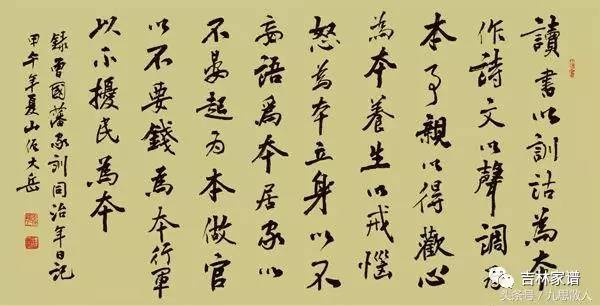 讀書以訓詁為本
作詩文以聲調為
本事親以得歡心
為本養生以戒惱
怒為本立身以不
妄語為本居家以
不晏起为本做官
以不要錢為本行軍
以不擾民為本
録曾國藩家訓同治年日記
甲午年夏山佐大岳
吉林家谱
头条号/九思散人